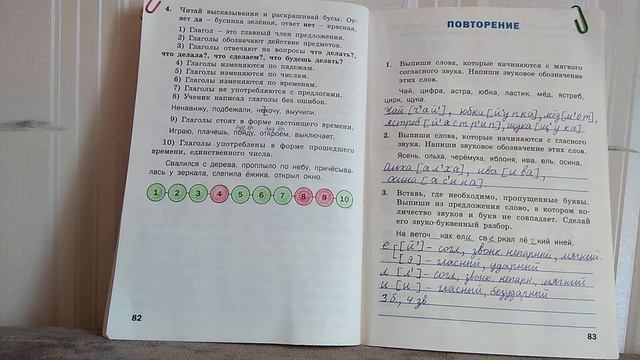 4. Читай высказывания и раскрашивай бусы. От-
вет да – бусинка зелёная, ответ нет – красная.
1) Глагол – это главный член предложения.
2) Глаголы обозначают действие предметов.
3) Глаголы отвечают на вопросы что делать?,
что делала?, что сделаем?, что будешь делать?
4) Глаголы изменяются по падежам.
5) Глаголы изменяются по числам.
6) Глаголы изменяются по временам.
7) Глаголы не употребляются с предлогами.
8) Ученик написал глаголы без ошибок.
Ненавижу, подбежали, нехочу, выучили.
9) Глаголы стоят в форме настоящего времени.
Играю, плачешь, пойду, откроем, выключает.
10) Глаголы употреблены в форме прошедшего
времени, единственного числа.
Свалился с дерева, проплыло по небу, причёсыва-
лась у зеркала, слепила ёжика, открыл окно.
1 2 3 4 5 6 7 8 9 10
82
ПОВТОРЕНИЕ
1. Выпиши слова, которые начинаются с мягкого
согласного звука. Напиши звуковое обозначение
этих слов.
Чай, цифра, астра, юбка, ластик, мёд, ястреб,
цирк, щука.
Чай [ч'ай'], юбка [й'упка], мёд [м'от],
ястреб [й'астр'ип], щука [щ'ука]
2. Выпиши слова, которые начинаются с гласного
звука. Напиши звуковое обозначение этих слов.
Ясень, ольха, черёмуха, яблоня, ива, ель, осина.
Ольха [ал'ха], ива [ива],
осина [ас'ина]
3. Вставь, где необходимо, пропущенные буквы.
Выпиши из предложения слово, в котором ко-
личество звуков и букв не совпадает. Сделай
его звуко-буквенный разбор.
На веточ_ках ели сверкал лёгкий иней.
е [й'] – согл., звонк. непарный, мягкий
[э] – гласный, ударный
л [л'] – согл., звонк. непарн., мягкий
и [и] – гласный, безударный
3 б., 4 зв.
83